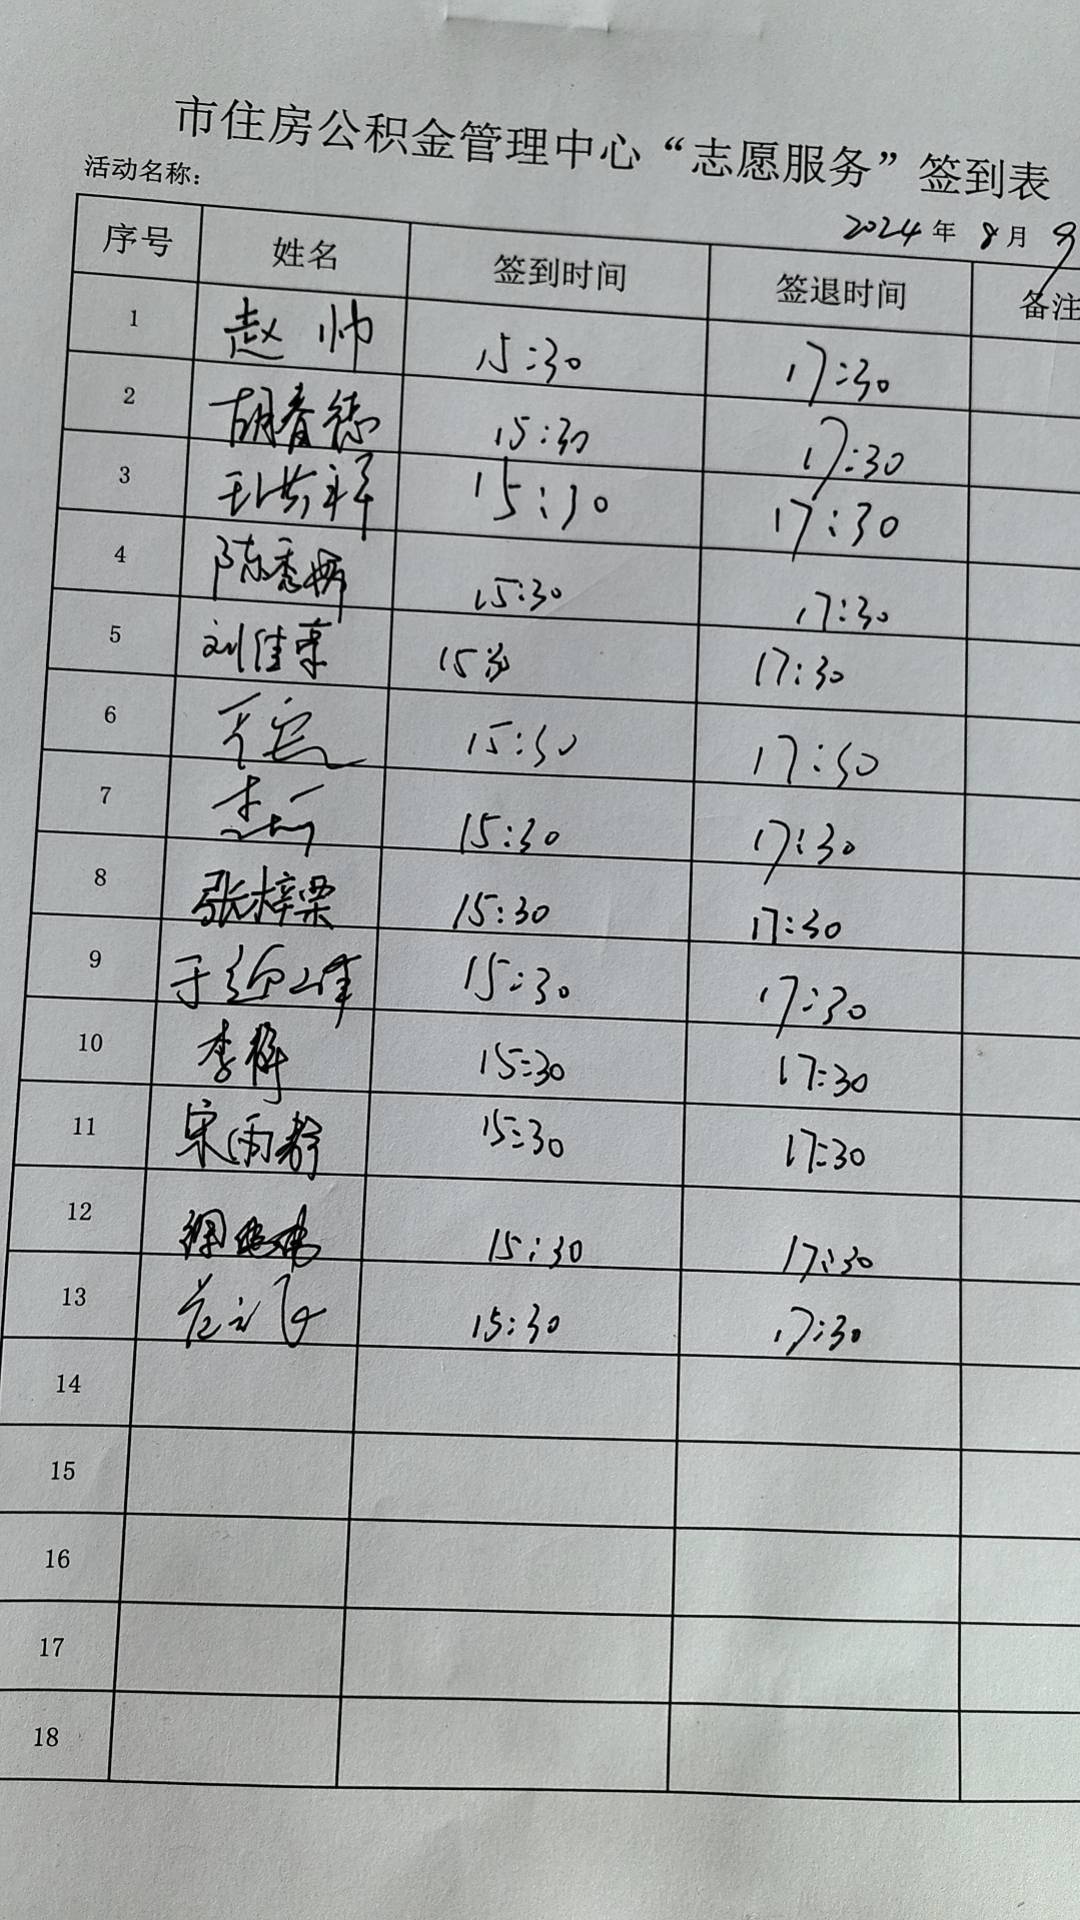 市住房公积金管理中心“志愿服务”签到表
活动名称：
2024年 8月 9
序号 姓名 签到时间 签退时间 备注
1 赵帅 15:30 17:30
2 胡春德 15:30 17:30
3 15:30 17:30
4 陈秀娜 15:30 17:30
5 刘佳 15:30 17:30
6 15:30 17:30
7 15:30 17:30
8 张梓栗 15:30 17:30
9 于迎峰 15:30 17:30
10 李梅 15:30 17:30
11 宋雨静 15:30 17:30
12 15:30 17:30
13 15:30 17:30
14
15
16
17
18